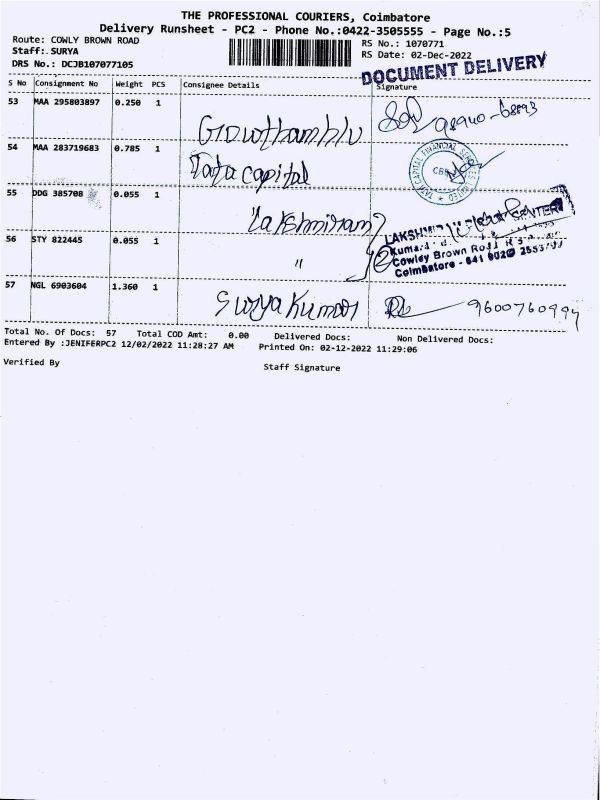 THE PROFESSIONAL COURIERS, Coimbatore
Delivery Runsheet - PC2 - Phone No.:0422-3505555 - Page No.:5
Route: COWLY BROWN ROAD
RS No.: 1070771
Staff: SURYA
RS Date: 02-Dec-2022
DRS No.: DCJB107077105
DOCUMENT DELIVERY
S No Consignment No Weight PCS Consignee Details Signature
53 MAA 295803897 0.250 1
98940-68893
54 MAA 283719683 0.785 1 Tata capital
TATA CAPITAL FINANCIAL SERVICES LIMITED
55 DDG 385708 0.055 1 Lakshmiram
56 STY 822445 0.055 1 "
CENTER
Cowley Brown Road
Coimbatore - 641 002
57 NGL 6903604 1.360 1 Surya Kumar 9600760994
Total No. Of Docs: 57 Total COD Amt: 0.00 Delivered Docs: Non Delivered Docs:
Entered By :JENIFERPC2 12/02/2022 11:28:27 AM Printed On: 02-12-2022 11:29:06
Verified By
Staff Signature